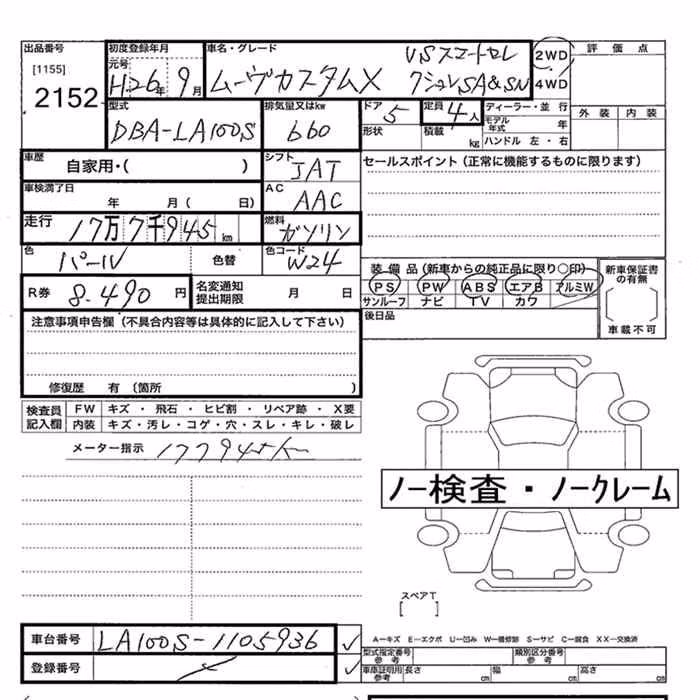 出品番号 初度登録年月 車名・グレード VSスマートセレ 2WD 評価点
[1155] 元号 H26年9月 ムーヴカスタムX クションSA&SN 4WD
2152
型式 排気量又はkw ドア 5 定員 4人 ディーラー・並行 外装 内装
DBA-LA100S 660 形状 積載 kg モデル年式 年
ハンドル 左・右
車歴 自家用・( ) シフト IAT セールスポイント(正常に機能するものに限ります)
車検満了日 年 月( 日) AC AAC
走行 17万7千945km 燃料 ガソリン
色 パール 色替 色コード W24 装備品(新車からの純正品に限り○印) 新車保証書の有無
R券 8.490円 名変通知提出期限 月 日 PS PW ABS エアB アルミW
サンルーフ ナビ TV カワ
注意事項申告欄(不具合内容等は具体的に記入して下さい) 後日品 車載不可
修復歴 有(箇所 )
検査員記入欄 FW キズ・飛石・ヒビ割・リペア跡・X要
内装 キズ・汚レ・コゲ・穴・スレ・キレ・破レ
メーター指示 177945km
ノー検査・ノークレーム
スペアT
[ ]
車台番号 LA100S-1105936 A−キズ E−エクボ U−凹み W−補修跡 S−サビ C−腐食 XX−交換済
型式指定番号 参考 類別区分番号 参考
登録番号 車庫証明用参考 長さ cm 幅 cm 高さ cm